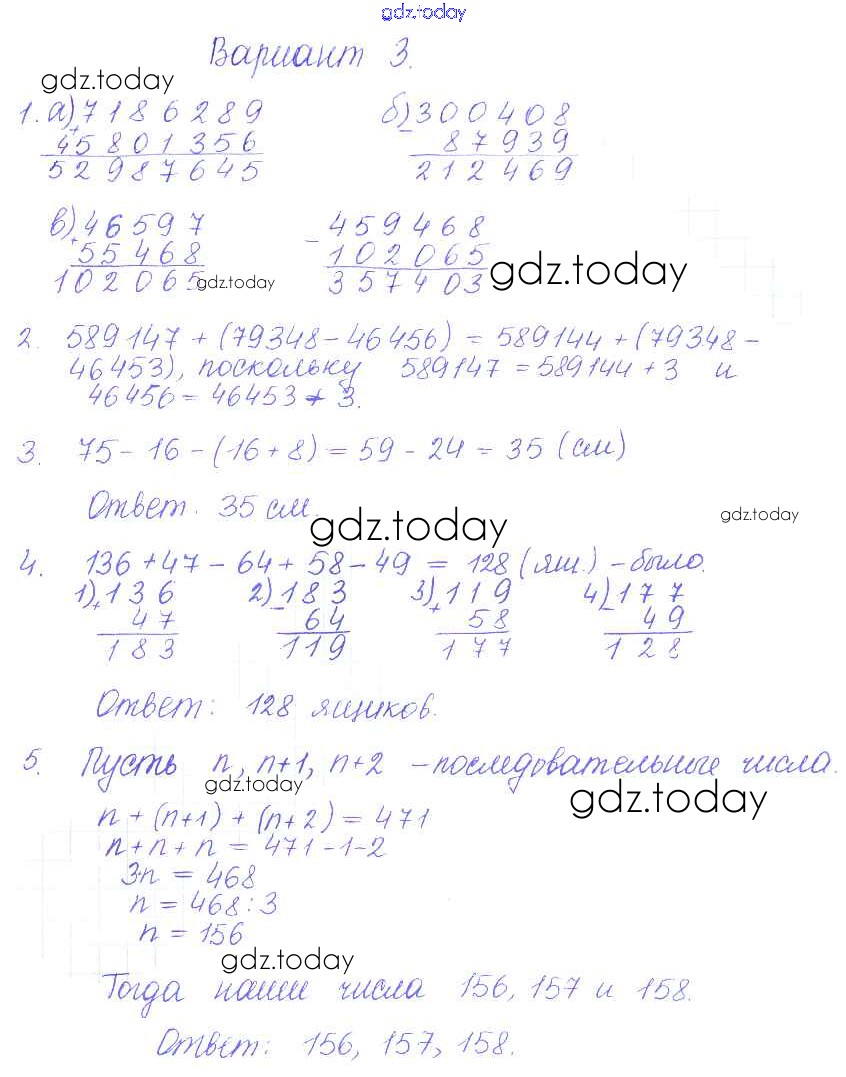 gdz.today
Вариант 3.
gdz.today
1. а) 7186289 б) 300408
+ 45801356 - 87939
52987645 212469
в) 46597 459468
+ 55468 - 102065
102065 gdz.today 357403 gdz.today
2. 589147 + (79348 - 46456) = 589144 + (79348 -
46453), поскольку 589147 = 589144 + 3 и
46456 = 46453 + 3.
3. 75 - 16 - (16 + 8) = 59 - 24 = 35 (см)
Ответ. 35 см.
gdz.today gdz.today
4. 136 + 47 - 64 + 58 - 49 = 128 (ящ.) - было.
1) 136 2) 183 3) 119 4) 177
+ 47 - 64 + 58 - 49
183 119 177 128
Ответ: 128 ящиков.
5. Пусть n, n+1, n+2 - последовательные числа.
gdz.today gdz.today
n + (n+1) + (n+2) = 471
n + n + n = 471 - 1 - 2
3·n = 468
n = 468 : 3
n = 156
gdz.today
Тогда наши числа 156, 157 и 158.
Ответ: 156, 157, 158.